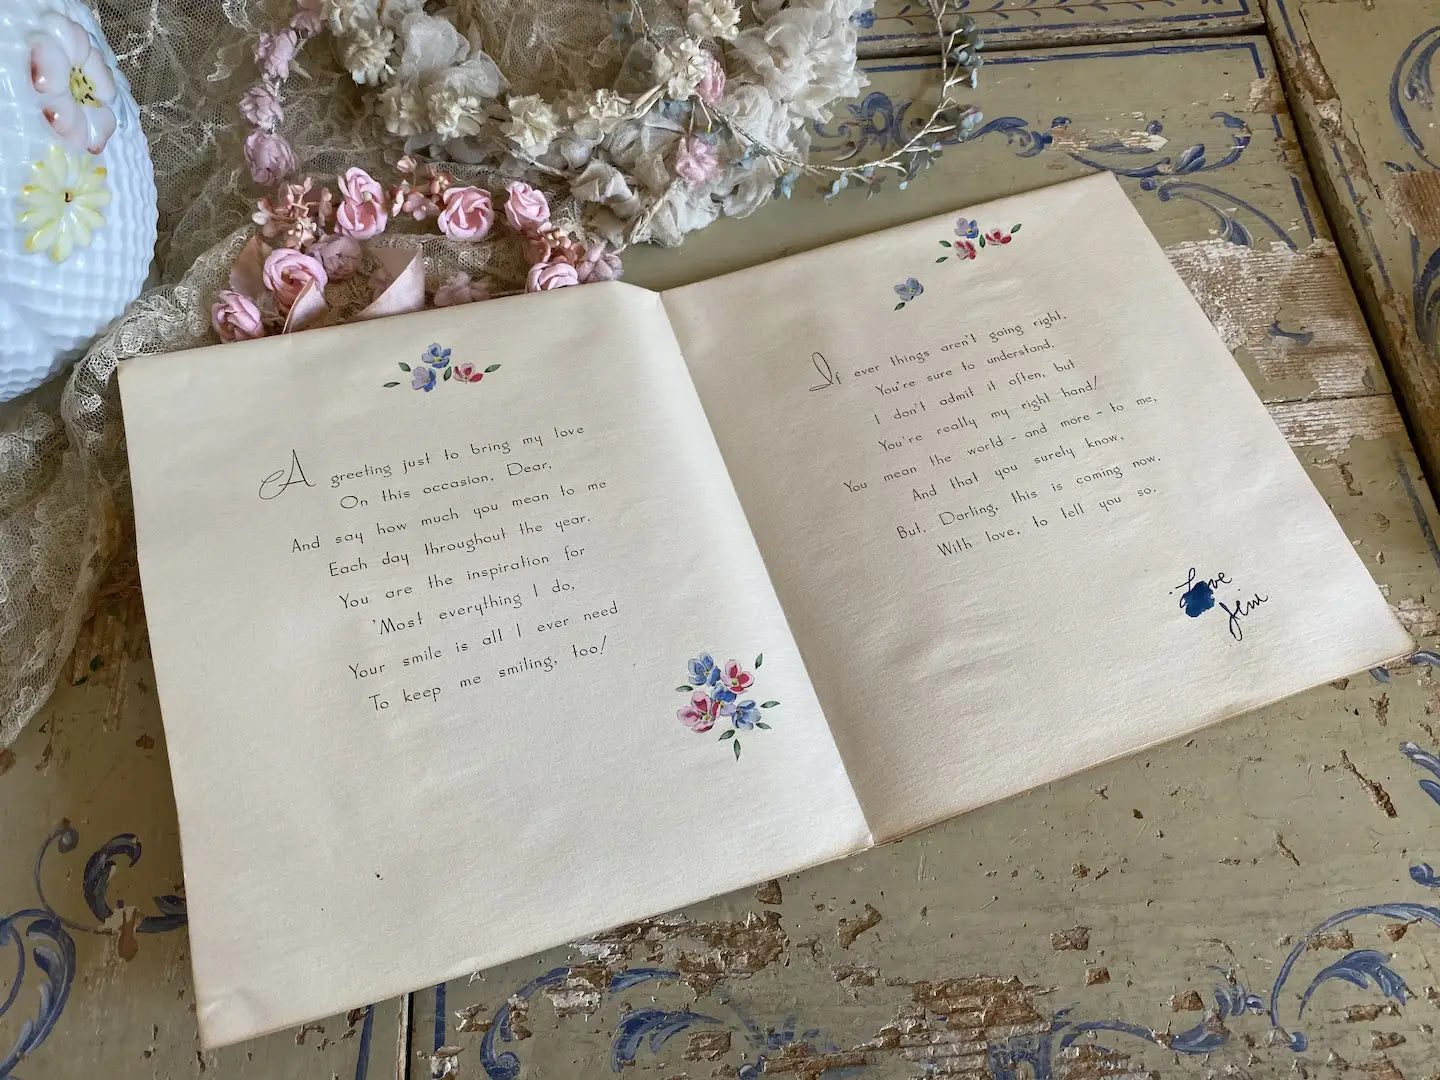 A greeting just to bring my love
On this occasion, Dear,
And say how much you mean to me
Each day throughout the year.
You are the inspiration for
'Most everything I do,
Your smile is all I ever need
To keep me smiling, too!
If ever things aren't going right,
You're sure to understand,
I don't admit it often, but
You're really my right hand!
You mean the world - and more - to me,
And that you surely know,
But, Darling, this is coming now,
With love, to tell you so.
Love
Jim